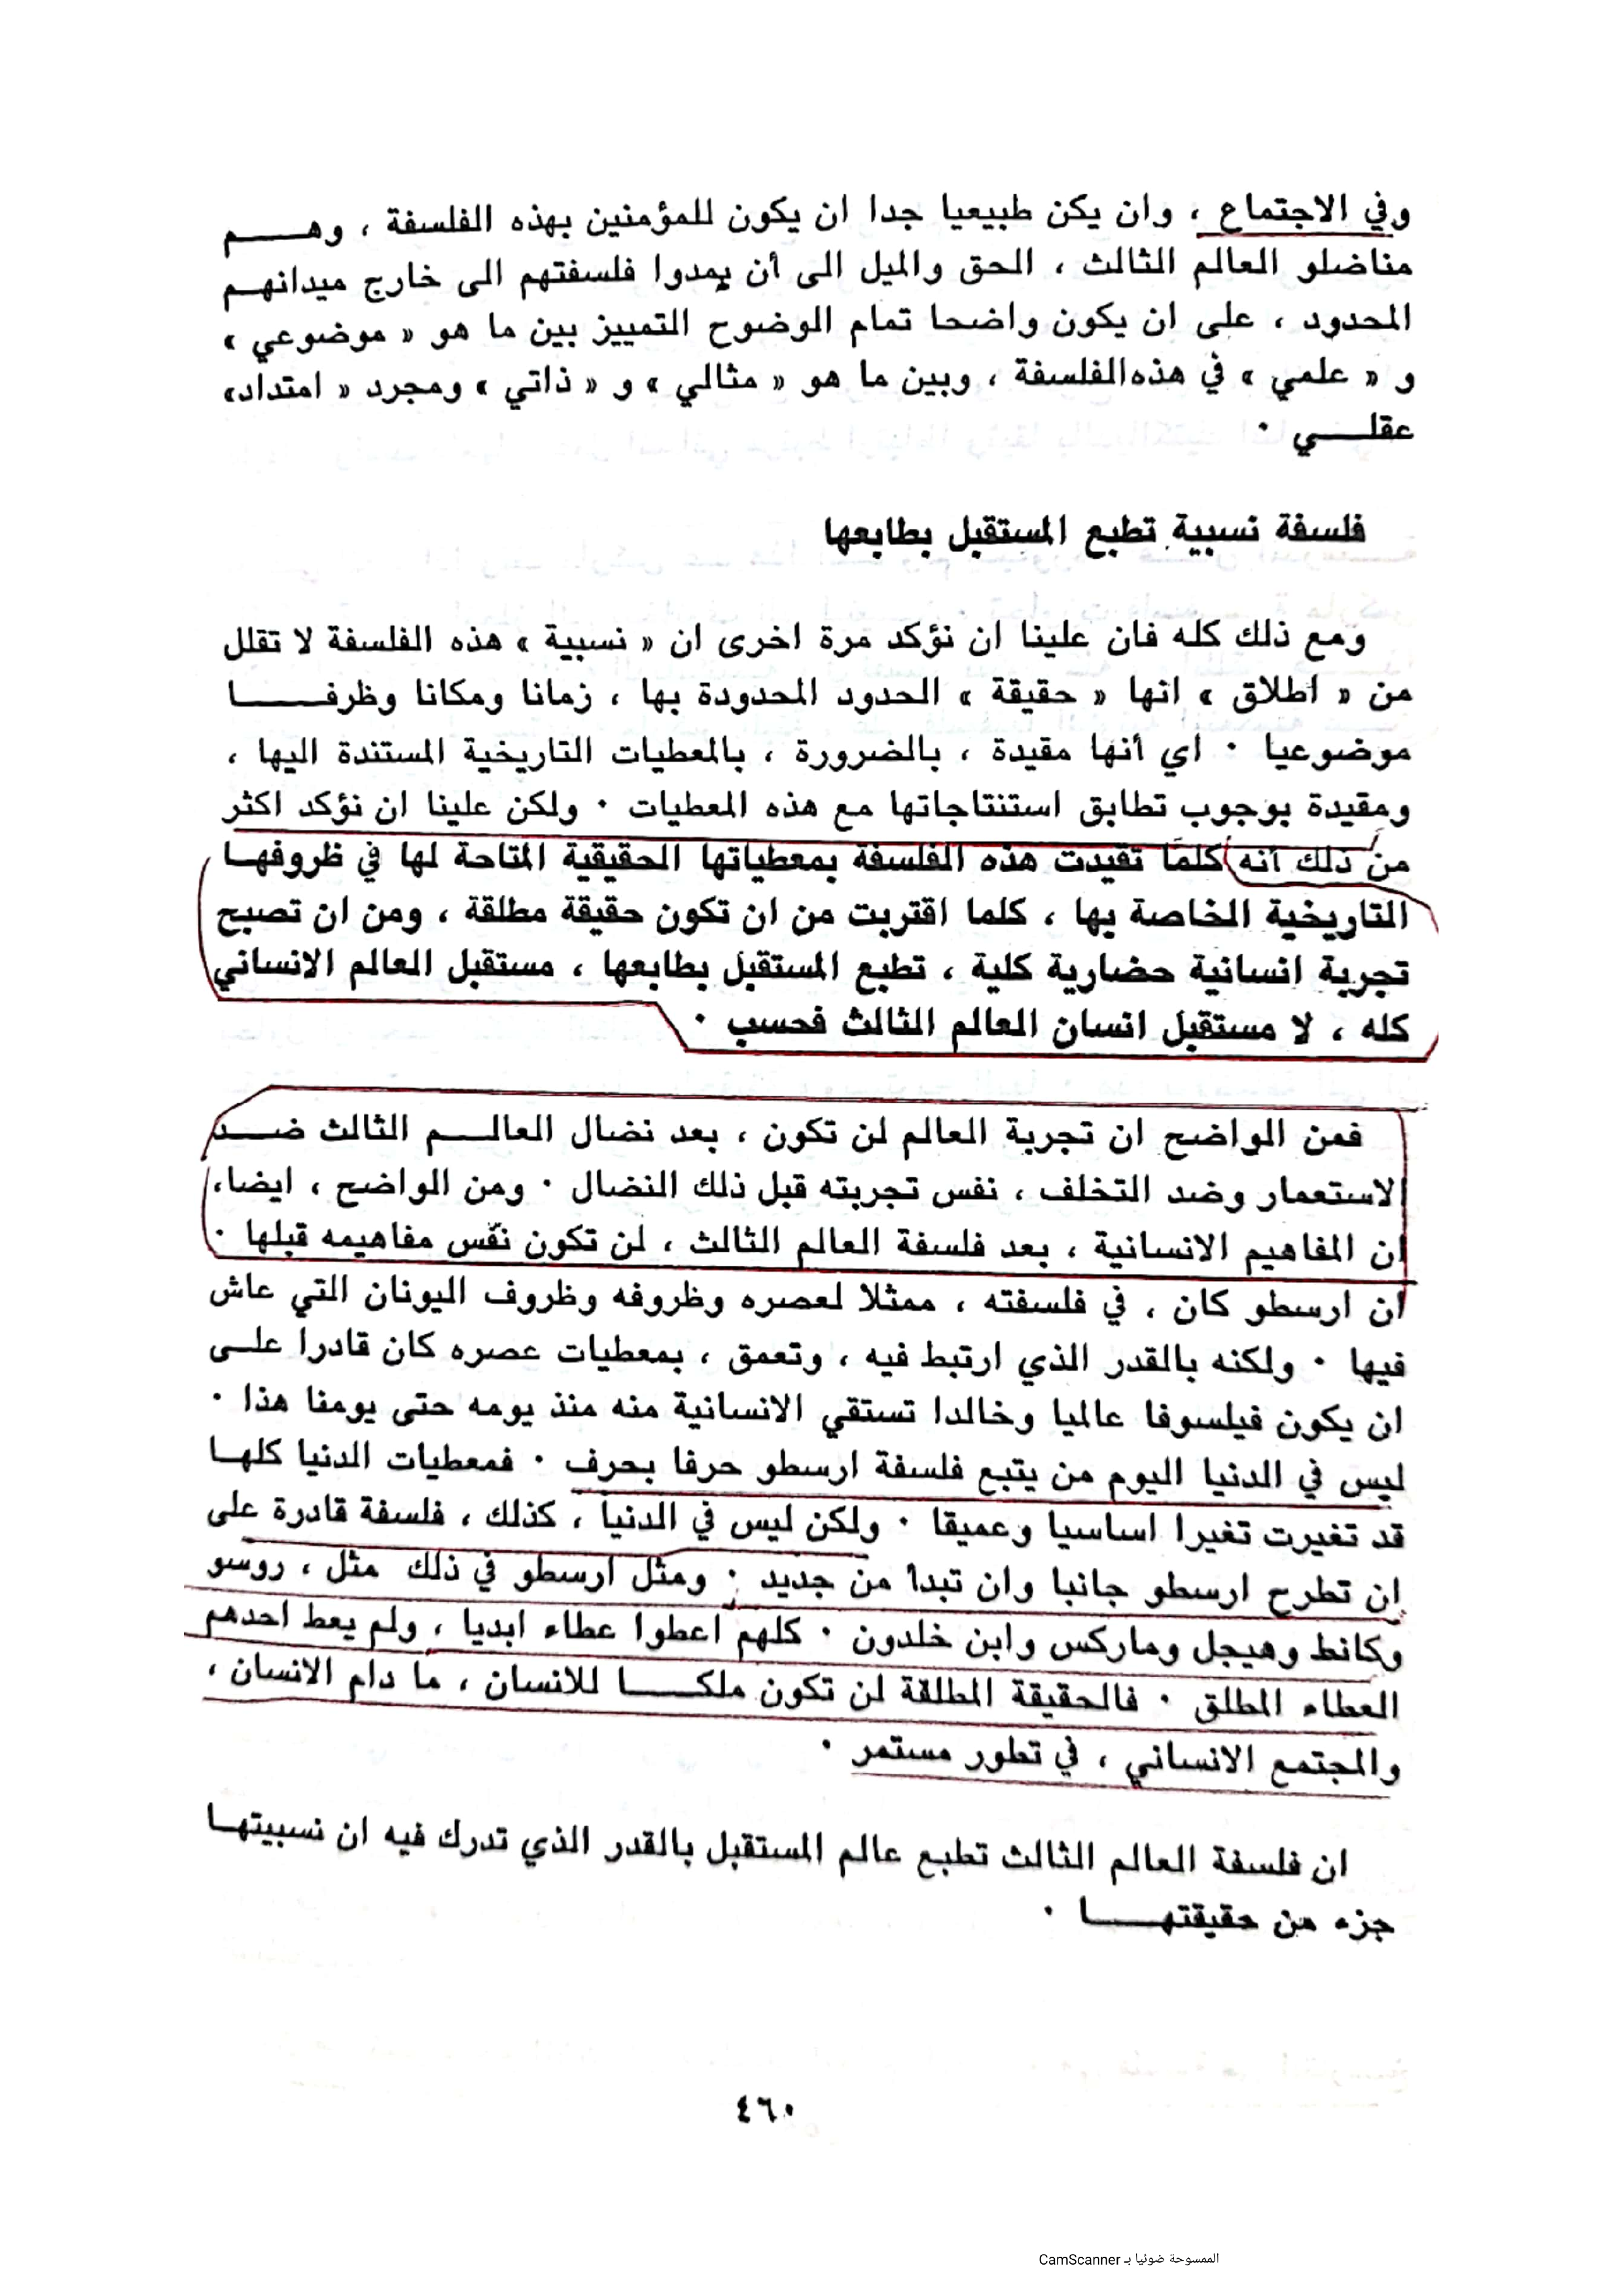 وفي الاجتماع ، وان يكن طبيعيا جدا ان يكون للمؤمنين بهذه الفلسفة ، وهم
مناضلو العالم الثالث ، الحق والميل الى أن يمدوا فلسفتهم الى خارج ميدانهم
المحدود ، على ان يكون واضحا تمام الوضوح التمييز بين ما هو « موضوعي »
و « علمي » في هذه الفلسفة ، وبين ما هو « مثالي » و « ذاتي » ومجرد « امتداد»
عقلي ٠
فلسفة نسبية تطبع المستقبل بطابعها
ومع ذلك كله فان علينا ان نؤكد مرة اخرى ان « نسبية » هذه الفلسفة لا تقلل
من « اطلاق » انها « حقيقة » الحدود المحدودة بها ، زمانا ومكانا وظرفا
موضوعيا ٠ اي أنها مقيدة ، بالضرورة ، بالمعطيات التاريخية المستندة اليها ،
ومقيدة بوجوب تطابق استنتاجاتها مع هذه المعطيات ٠ ولكن علينا ان نؤكد اكثر
من ذلك أنه كلما تقيدت هذه الفلسفة بمعطياتها الحقيقية المتاحة لها في ظروفها
التاريخية الخاصة بها ، كلما اقتربت من ان تكون حقيقة مطلقة ، ومن ان تصبح
تجربة انسانية حضارية كلية ، تطبع المستقبل بطابعها ، مستقبل العالم الانساني
كله ، لا مستقبل انسان العالم الثالث فحسب ٠
فمن الواضح ان تجربة العالم لن تكون ، بعد نضال العالم الثالث ضد
الاستعمار وضد التخلف ، نفس تجربته قبل ذلك النضال ٠ ومن الواضح ، ايضا،
ان المفاهيم الانسانية ، بعد فلسفة العالم الثالث ، لن تكون نفس مفاهيمه قبلها ٠
ان ارسطو كان ، في فلسفته ، ممثلا لعصره وظروفه وظروف اليونان التي عاش
فيها ٠ ولكنه بالقدر الذي ارتبط فيه ، وتعمق ، بمعطيات عصره كان قادرا على
ان يكون فيلسوفا عالميا وخالدا تستقي الانسانية منه منذ يومه حتى يومنا هذا ٠
ليس في الدنيا اليوم من يتبع فلسفة ارسطو حرفا بحرف ٠ فمعطيات الدنيا كلها
قد تغيرت تغيرا اساسيا وعميقا ٠ ولكن ليس في الدنيا ، كذلك ، فلسفة قادرة على
ان تطرح ارسطو جانبا وان تبدأ من جديد ٠ ومثل ارسطو في ذلك مثل ، روسو
وكانط وهيجل وماركس وابن خلدون ٠ كلهم اعطوا عطاء ابديا ، ولم يعط احدهم
العطاء المطلق ٠ فالحقيقة المطلقة لن تكون ملكا للانسان ، ما دام الانسان ،
والمجتمع الانساني ، في تطور مستمر ٠
ان فلسفة العالم الثالث تطبع عالم المستقبل بالقدر الذي تدرك فيه ان نسبيتها
جزء من حقيقتها ٠
٤٦٠
الممسوحة ضوئيا بـ CamScanner